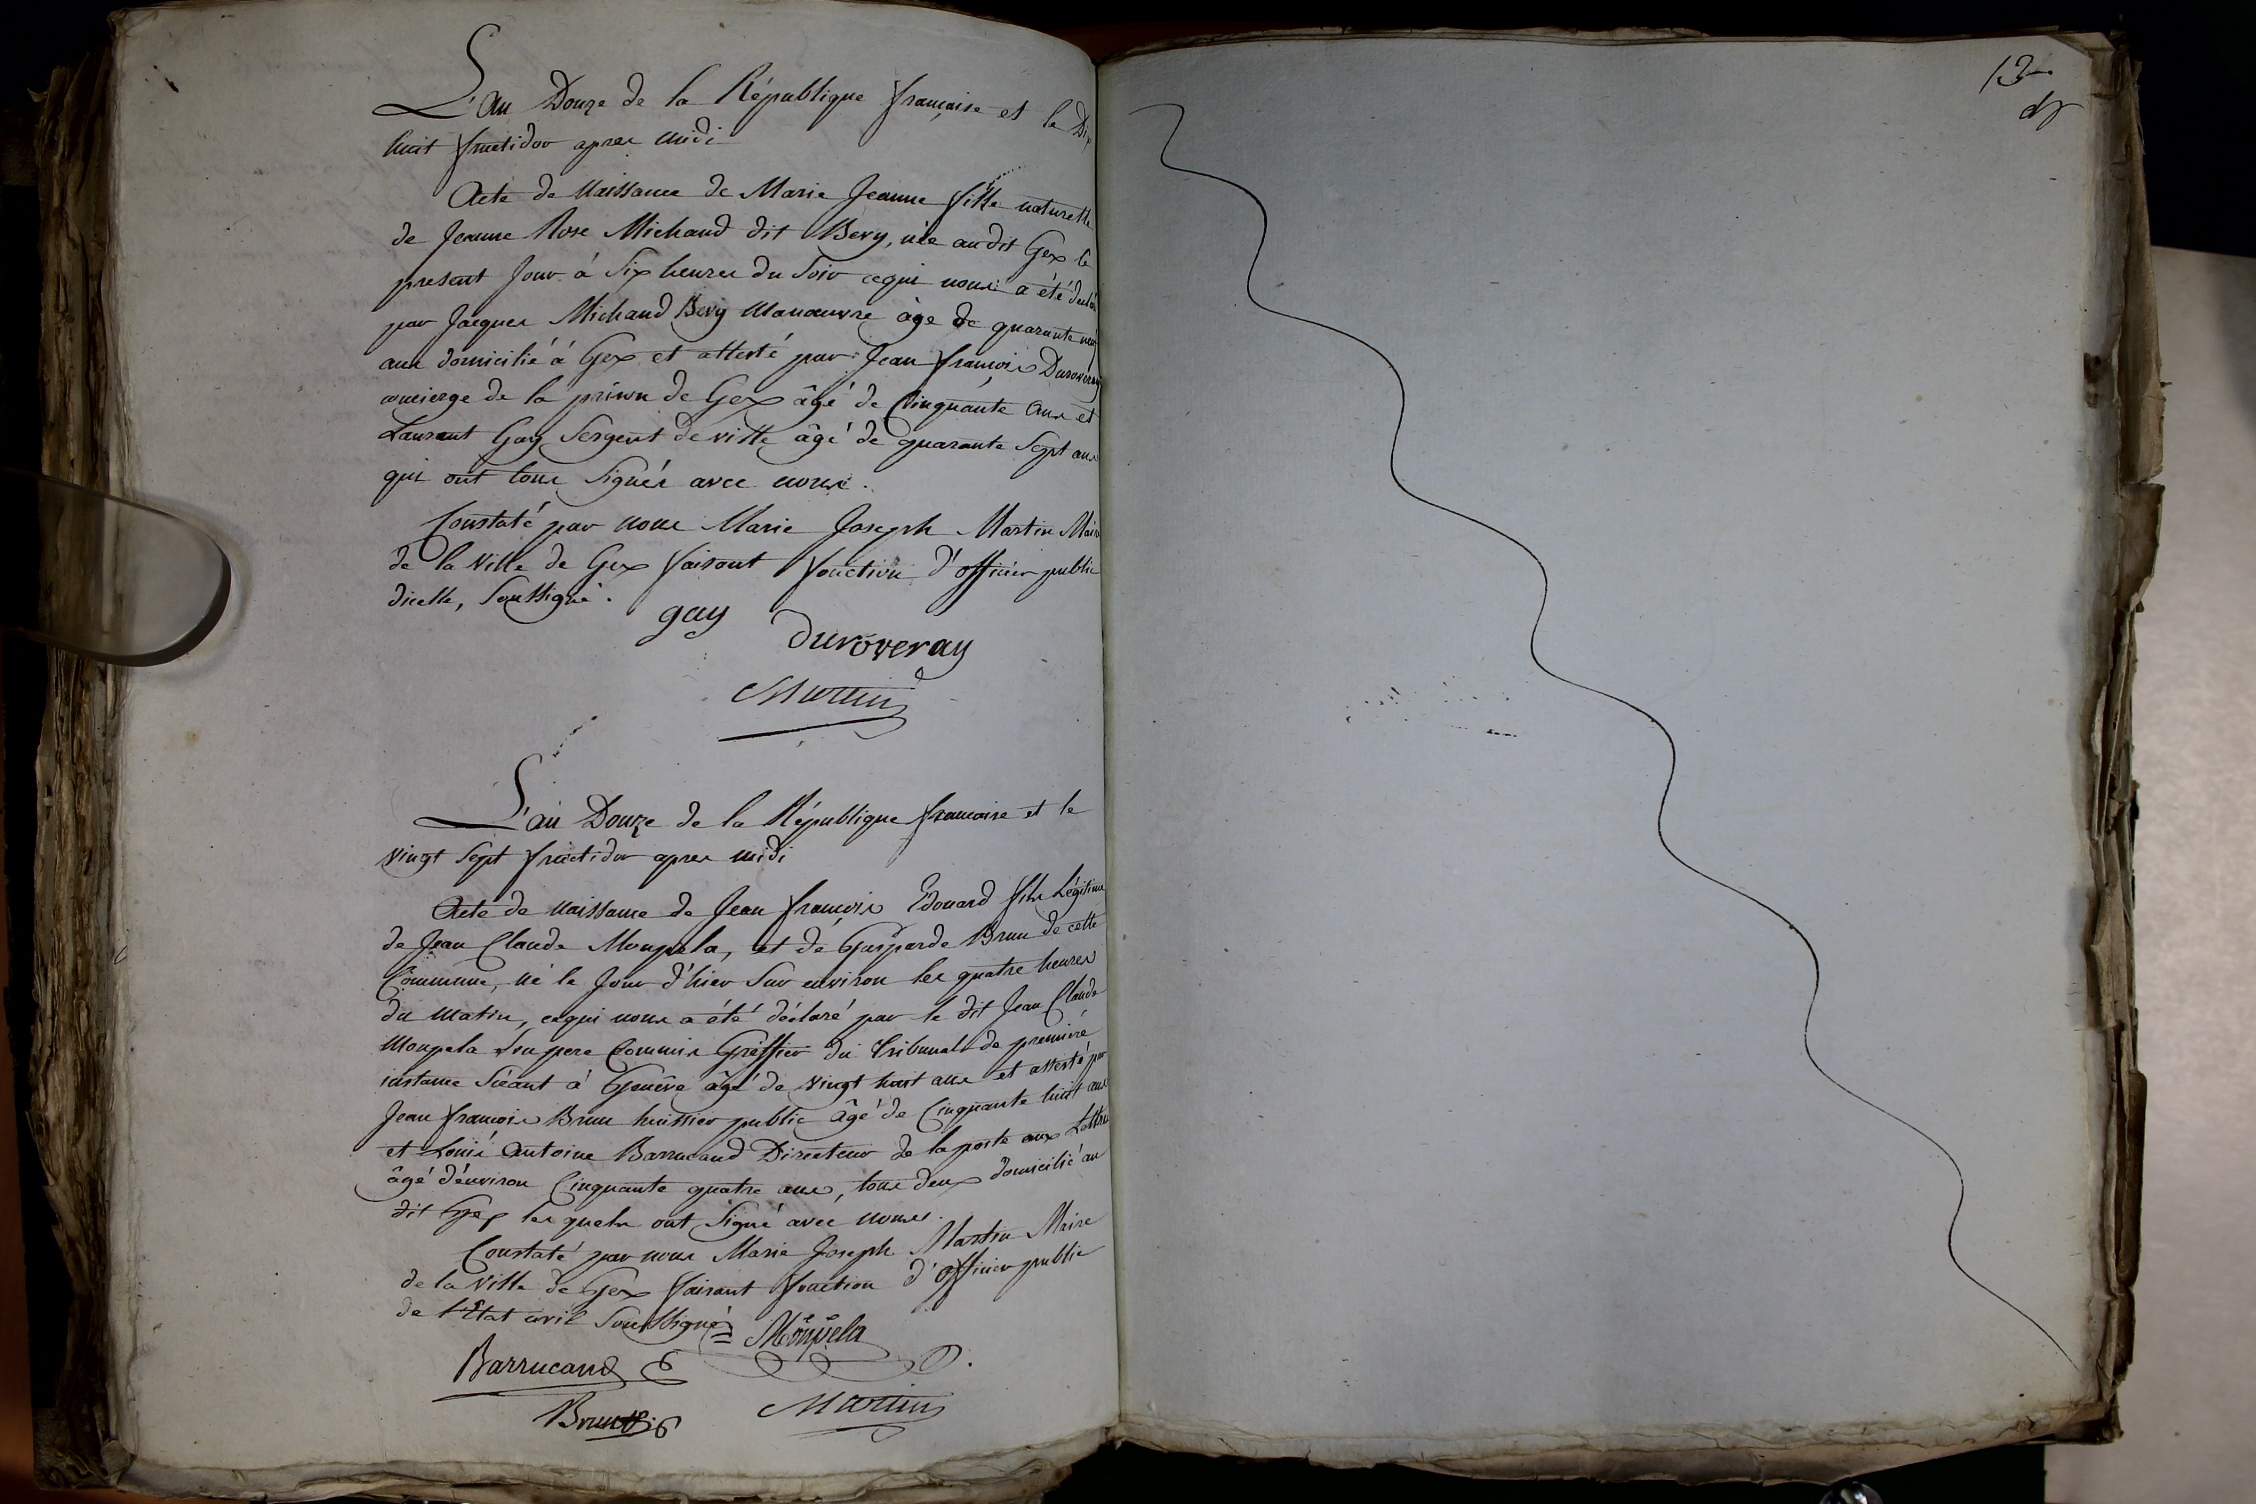 L'an Douze de la République française et le Dix
huit fructidor apres midi
Acte de Naissance de Marie Jeanne fille naturelle
de Jeanne Rose Michaud dit Bevy, née au dit Gex le
present Jour à Six heures du Soir cequi nous a été declaré
par Jacques Michaud Bevy Manœuvre âge de quarante neuf
ans domicilié à Gex et attesté par Jean françois Duroveray
concierge de la prison de Gex âgé de Cinquante Ans et
Laurent Gay Sergent de ville âgé de quarante Sept ans
qui ont tous Signés avec nous.
Constaté par nous Marie Joseph Martin Maire
de la Ville de Gex faisant fonction d'officier public
dicelle, Soussigné.
gay
Duroveray
Martin
L'an Douze de la République francaise et le
vingt Sept fructidor apres midi
Acte de Naissance de Jean françois Edouard fils Légitime
de Jean Claude Monpela, et de Gasparde Brun de cette
Commune, né le Jour d'hier Sur environ les quatre heures
du matin, cequi nous a été déclaré par le dit Jean Claude
Monpela Son pere Commis Greffier du Tribunal de premiere
instance Séant à Genêve âgé de vingt huit ans et attesté par
Jean francois Brun huissier public âgé de Cinquante huit ans
et Louis Antoine Barrucand Directeur de la poste aux Lettres
âgé d'environ Cinquante quatre ans, tous deux domicilié au
dit Gex les quels ont Signé avec nous.
Constaté par nous Marie Joseph Martin Maire
de la Ville de Gex faisant fonction d'officier public
de l'Etat civil Soussigné
Monpela
Barrucand
Brun
Martin
13